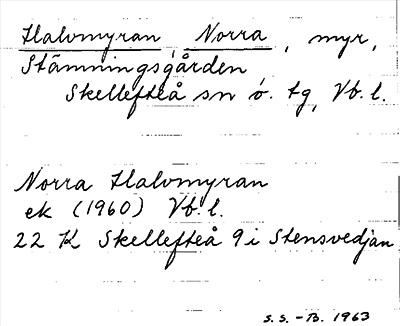 Halvmyran, Norra, myr,
Stämningsgården
Skellefteå sn ö. tg, Vb. l.
Norra Halvmyran
ek (1960) Vb. l.
22 K Skellefteå 9 i Stensvedjan
S. S. - B. 1963